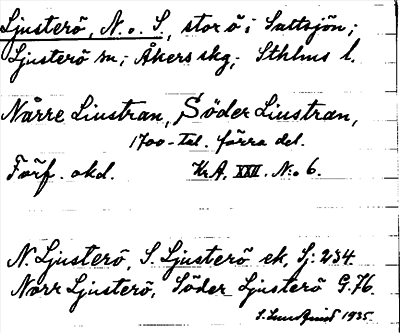 Ljusterö, N. o. S, stor ö i Saltsjön;
Ljusterö sn; Åkers skg; Sthlms l.
Nårre Liustran, Söder Liustran,
1700-tal. förra del.
Förf. okd. Kr A. XXII. N:o 6.
N. Ljusterö, S. Ljusterö ek, Sj: 234.
Norr Ljusterö, Söder Ljusterö G. 76.
S. Lundquist 1935